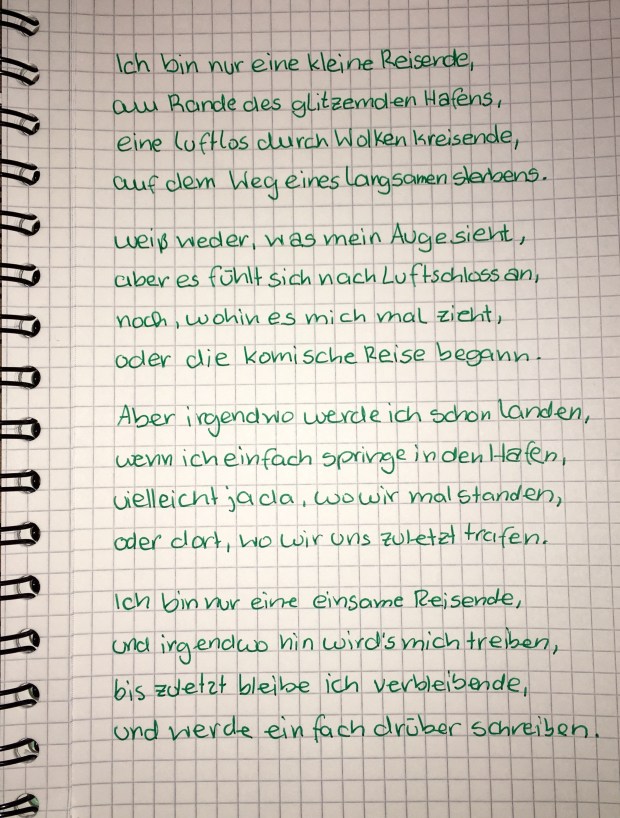 Ich bin nur eine kleine Reisende,
am Rande des glitzernden Hafens,
eine luftlos durch Wolken kreisende,
auf dem Weg eines langsamen sterbens.
weiß weder, was mein Auge sieht,
aber es fühlt sich nach Luftschloss an,
noch, wohin es mich mal zieht,
oder die komische Reise begann.
Aber irgendwo werde ich schon landen,
wenn ich einfach springe in den Hafen,
vielleicht ja da, wo wir mal standen,
oder dort, wo wir uns zuletzt trafen.
Ich bin nur eine einsame Reisende,
und irgendwo hin wird's mich treiben,
bis zuletzt bleibe ich verbleibende,
und werde einfach drüber schreiben.